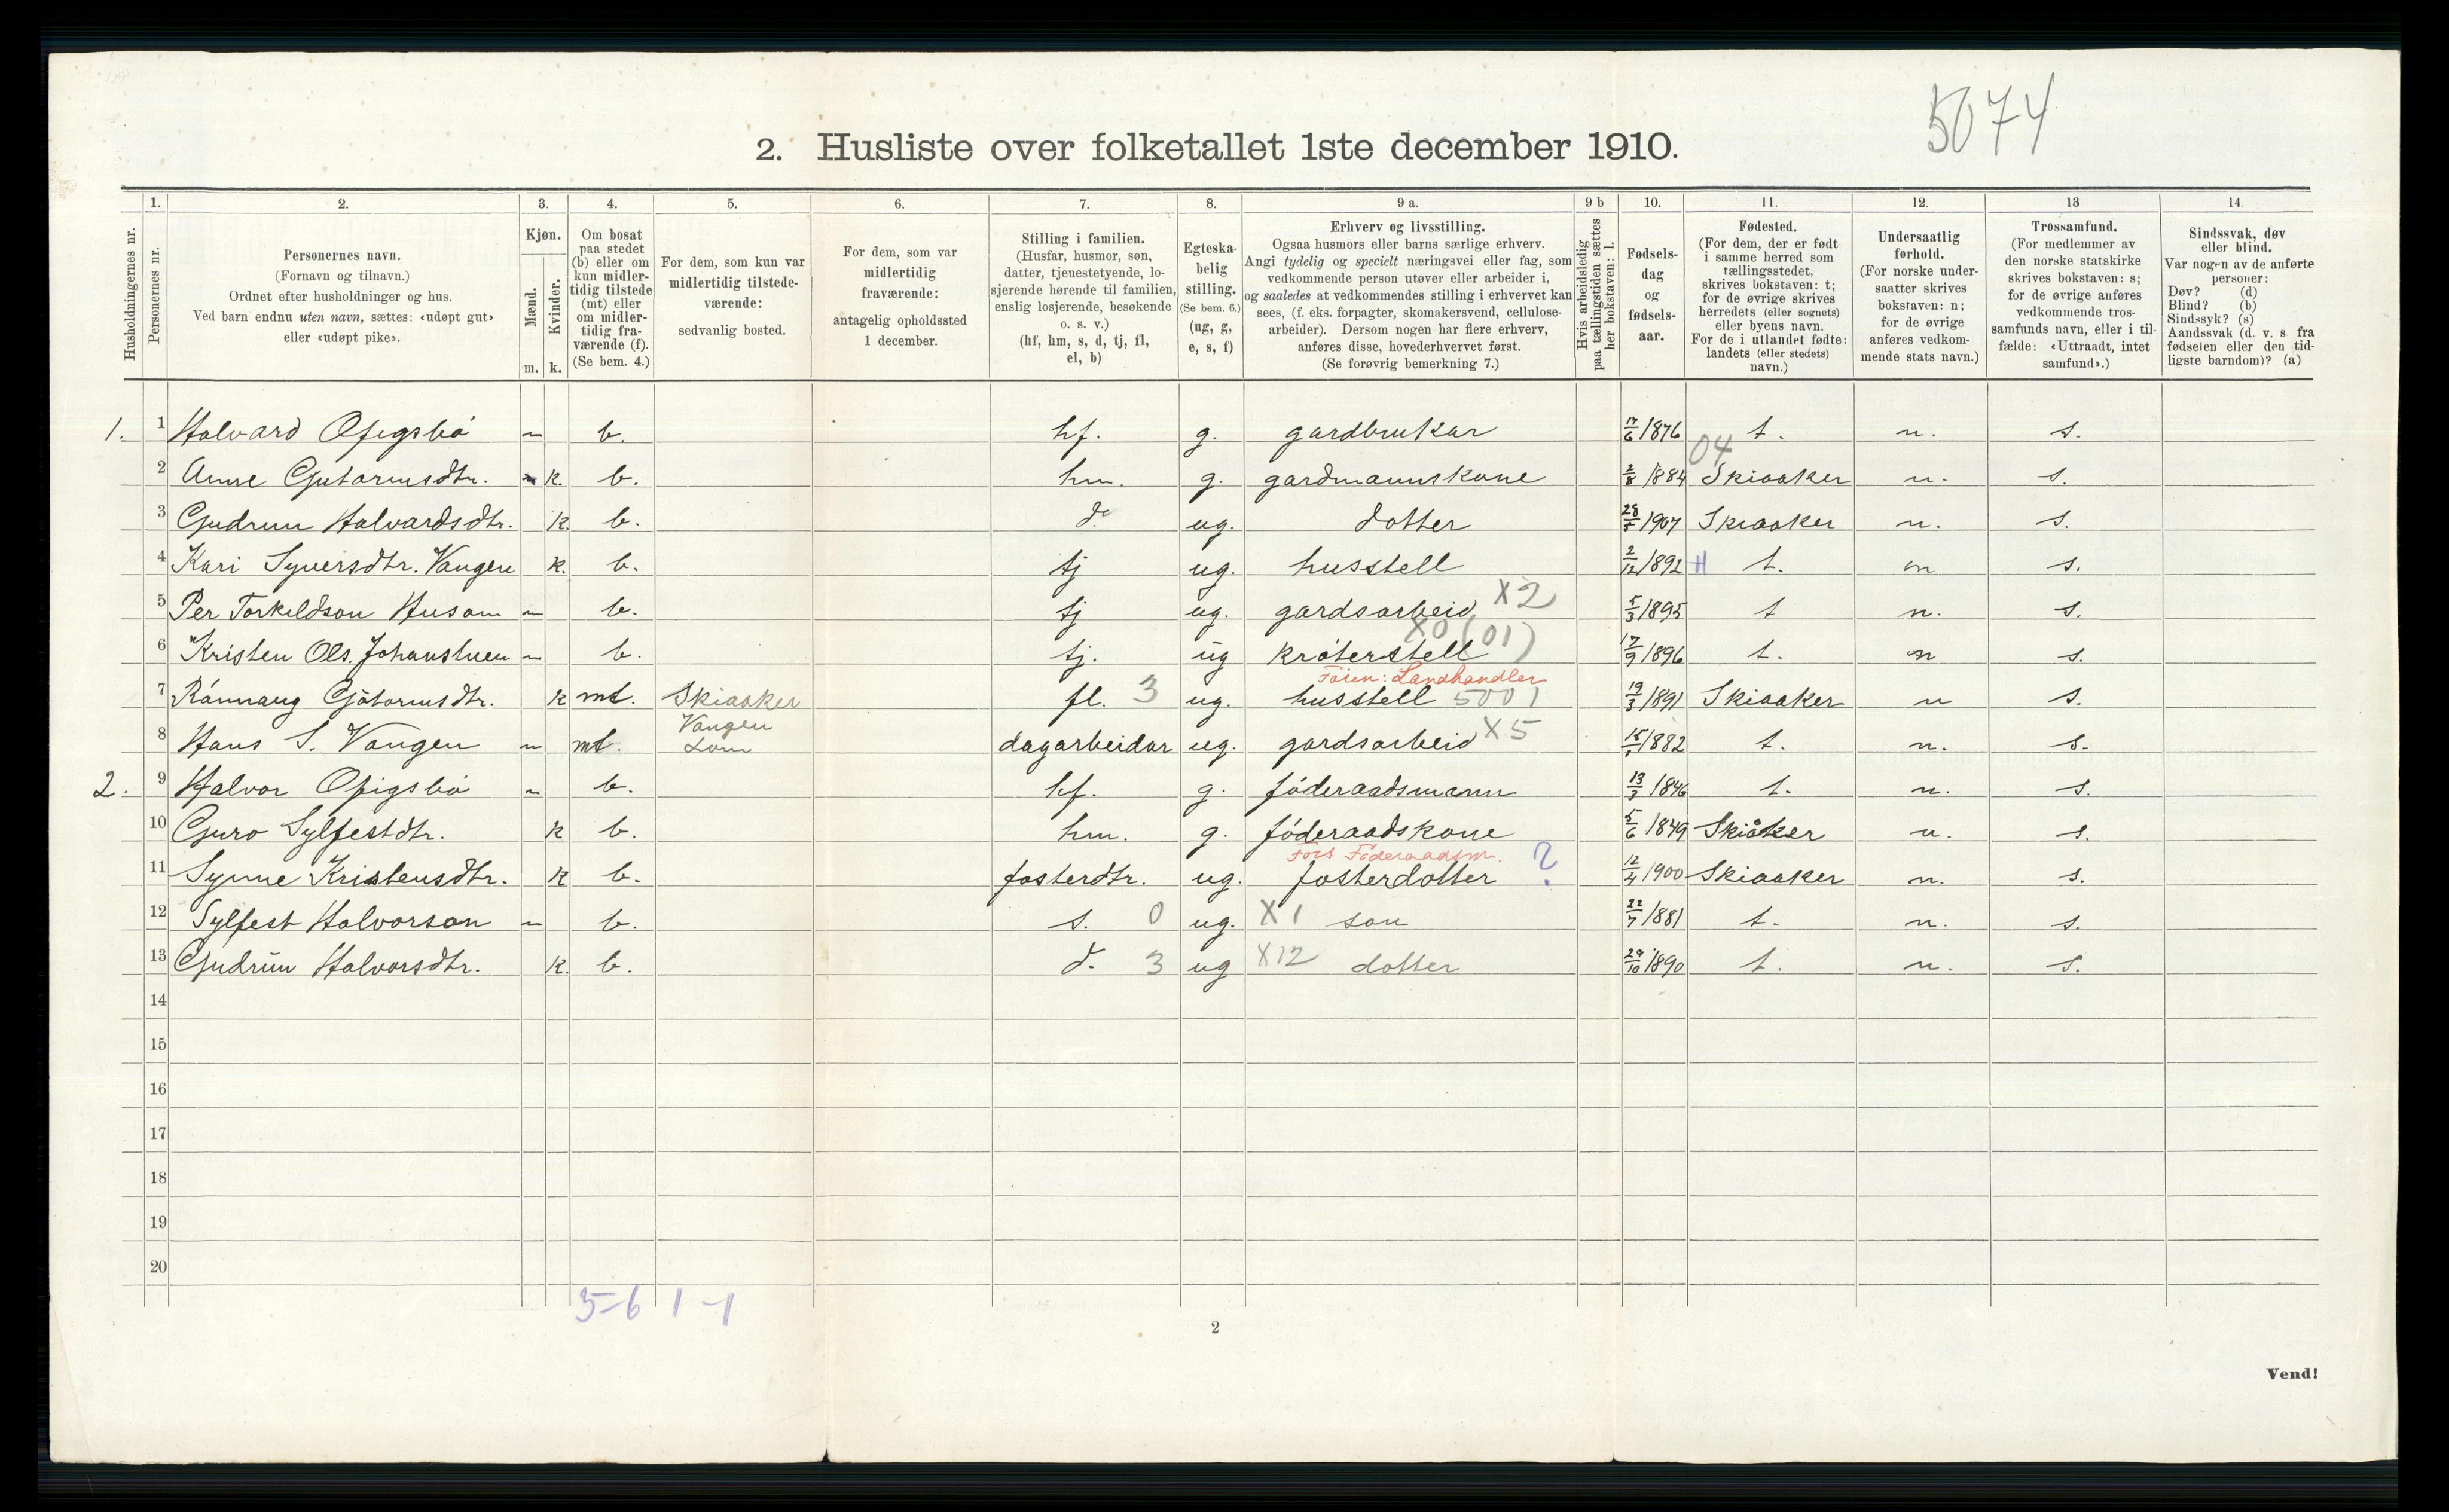 5074
2. Husliste over folketallet 1ste december 1910.
Husholdningernes nr.
1.
Personernes nr.
2.
Personernes navn.
(Fornavn og tilnavn.)
Ordnet efter husholdninger og hus.
Ved barn endnu uten navn, sættes: «udøpt gut»
eller «udøpt pike».
3.
Kjøn.
Mænd.
Kvinder.
m. k.
4.
Om bosat
paa stedet
(b) eller om
kun midler-
tidig tilstede
(mt) eller
om midler-
tidig fra-
værende (f).
(Se bem. 4.)
5.
For dem, som kun var
midlertidig tilstede-
værende:
sedvanlig bosted.
6.
For dem, som var
midlertidig
fraværende:
antagelig opholdssted
1 december.
7.
Stilling i familien.
(Husfar, husmor, søn,
datter, tjenestetyende, lo-
sjerende hørende til familien,
enslig losjerende, besøkende
o. s. v.)
(hf, hm, s, d, tj, fl,
el, b)
8.
Egteska-
belig
stilling.
(Se bem. 6.)
(ug, g,
e, s, f)
9 a.
Erhverv og livsstilling.
Ogsaa husmors eller barns særlige erhverv.
Angi tydelig og specielt næringsvei eller fag, som
vedkommende person utøver eller arbeider i,
og saaledes at vedkommendes stilling i erhvervet kan
sees, (f. eks. forpagter, skomakersvend, cellulose-
arbeider). Dersom nogen har flere erhverv,
anføres disse, hovederhvervet først.
(Se forøvrig bemerkning 7.)
9 b
Hvis arbeidsledig
paa tællingstiden sættes
her bokstaven: l.
10.
Fødsels-
dag
og
fødsels-
aar.
11.
Fødested.
(For dem, der er født
i samme herred som
tællingsstedet,
skrives bokstaven: t;
for de øvrige skrives
herredets (eller sognets)
eller byens navn.
For de i utlandet fødte:
landets (eller stedets)
navn.)
12.
Undersaatlig
forhold.
(For norske under-
saatter skrives
bokstaven: n;
for de øvrige
anføres vedkom-
mende stats navn.)
13
Trossamfund.
(For medlemmer av
den norske statskirke
skrives bokstaven: s;
for de øvrige anføres
vedkommende tros-
samfunds navn, eller i til-
fælde: «Uttraadt, intet
samfund».)
14.
Sindssvak, døv
eller blind.
Var nogen av de anførte
personer:
Døv? (d)
Blind? (b)
Sindssyk? (s)
Aandssvak (d. v. s. fra
fødselen eller den tid-
ligste barndom)? (a)
1. 1 Halvard Ofigsbø m b. hf. g. gardbrukar 17/6 1876 t. n. s.
04
2 Anne Gutormsdtr. k. b. hm. g. gardmannskone 2/8 1884 Skiaaker n. s.
3 Gudrun Halvardsdtr. k. b. d. ug. dotter 28/5 1907 Skiaaker n. s.
4 Kari Syversdtr. Vangen k. b. tj ug. husstell 2/12 1892 t. n s.
5 Per Torkildson Husom m b. tj ug. gardsarbeid X2 5/3 1895 t n. s.
X0 (01)
6 Kristen Ols. Johanstuen m b. tj. ug krøterstell 17/9 1896 t. n s.
Faren: Landhandler
7 Rannaug Gutormsdtr. k mt. Skiaaker fl. 3 ug. husstell 5001 19/3 1891 Skiaaker n s.
8 Hans S. Vangen m mt. Vangen Lom dagarbeidar ug. gardsarbeid X5 15/1 1882 t. n. s.
2. 9 Halvor Ofigsbø m b. hf. g. føderaadsmann 13/3 1846 t. n. s.
10 Guro Sylfestdtr. k b. hm. g. føderaadskone 5/6 1849 Skiåker n. s.
Fors Føderaadsm.
11 Synne Kristensdtr. k b. fosterdtr. ug. fosterdotter ? 12/4 1900 Skiaaker n. s.
12 Sylfest Halvorson m b. s. 0 ug. X1 son 22/7 1881 t. n. s.
13 Gudrun Halvorsdtr. k. b. d. 3 ug X12 dotter 29/10 1890 t. n. s.
14
15
16
17
18
19
20
5-6 1-1
2
Vend!